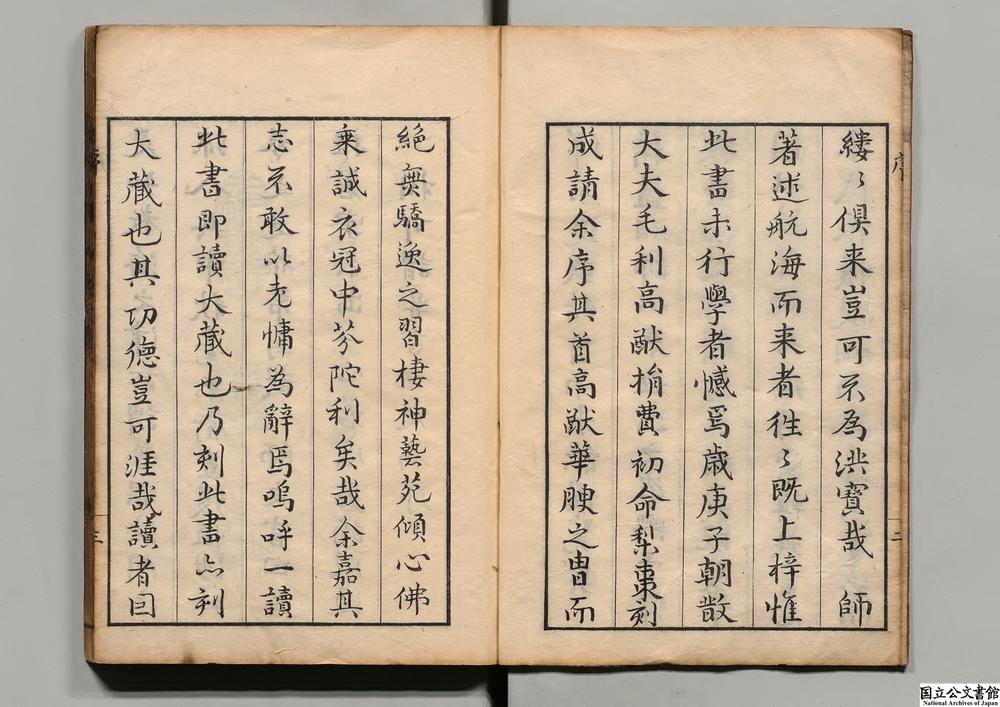 縷〻俱来豈可不為洪寶哉　師
著述航海而来者徃〻既上梓惟
此書未行學者憾焉歳庚子朝散
大夫毛利高猷捐費初命梨棗刻
成請余序其首高猷華腴之胄而
絶無驕逸之習棲神藝苑傾心佛
乗誠衣冠中芬陀利矣哉余嘉其
志不敢以老慵為辭焉嗚呼一讀
此書即讀大藏也乃刻此書亦刻
大藏也其功德豈可涯哉讀者因
序
三
三
国立公文書館
National Archives of Japan